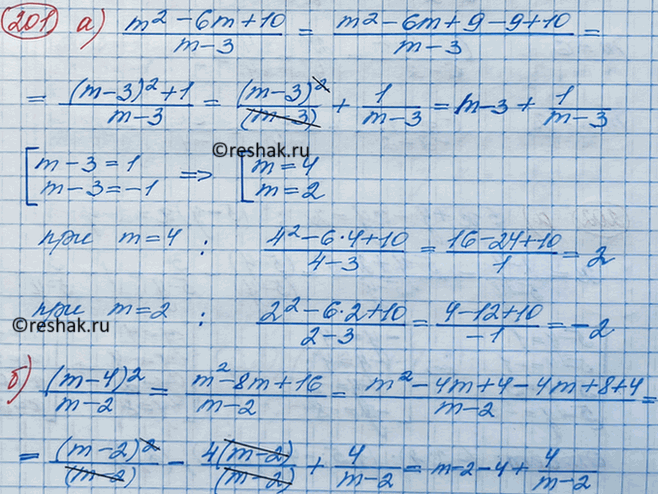 201 а) (m² - 6m + 10)/(m - 3) = (m² - 6m + 9 - 9 + 10)/(m - 3) =
= ((m-3)² + 1)/(m-3) = (m-3)²/(m-3) + 1/(m-3) = m-3 + 1/(m-3)
©reshak.ru
[m - 3 = 1 => [m = 4
[m - 3 = -1 [m = 2
при m = 4 : (4² - 6·4 + 10)/(4 - 3) = (16 - 24 + 10)/1 = 2
при m = 2 : (2² - 6·2 + 10)/(2 - 3) = (4 - 12 + 10)/(-1) = -2
©reshak.ru
б) (m-4)²/(m-2) = (m² - 8m + 16)/(m-2) = (m² - 4m + 4 - 4m + 8 + 4)/(m-2) =
= (m-2)²/(m-2) - 4(m-2)/(m-2) + 4/(m-2) = m-2-4 + 4/(m-2)